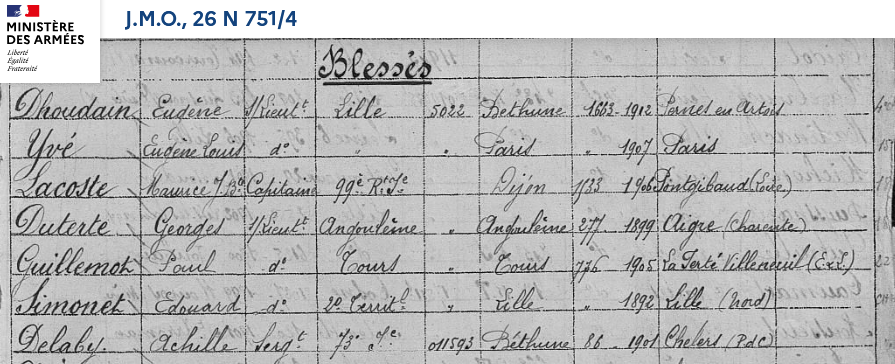 MINISTÈRE
DES ARMÉES
Liberté
Égalité
Fraternité
J.M.O., 26 N 751/4
Blessés
Dhoudain Eugène s/Lieutt Lille 5022 Béthune 1663 1912 Pernes en Artois
Yvé Eugène Louis do " " Paris " 1907 Paris
Lacoste Maurice J. Bte Capitaine 99e Rt Ie Dijon 1733 1906 Pontgibaud
Duterte Georges s/Lieutt Angoulême " Angoulême 277 1899 Aigre (Charente)
Guillemot Paul do Tours " Tours 776 1905 La Ferté Villeneuil (E&L)
Simonet Edouard do 2e Territl " Lille " 1892 Lille (Nord)
Delaby Achille Sergt 73e Ie 011593 Béthune 86 1901 Chelers (PdC)